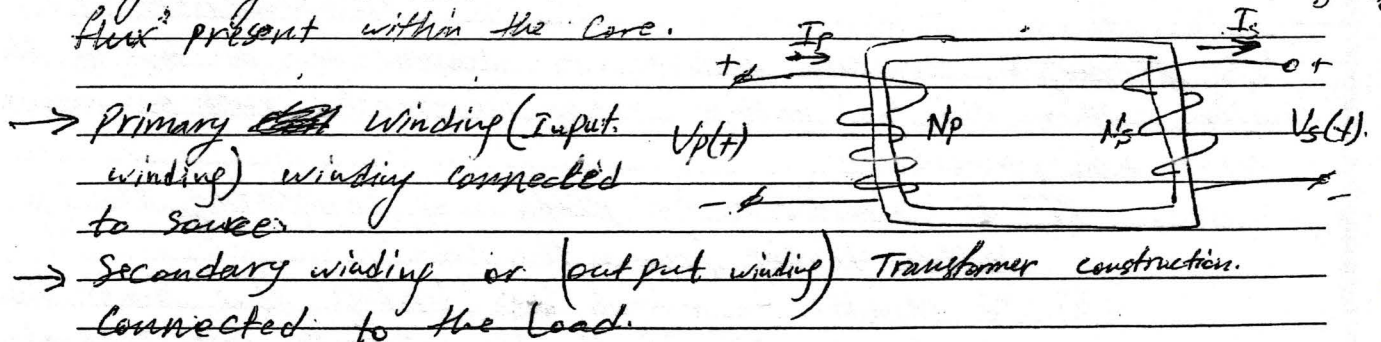 flux" present within the Core.
Ip
Is
+
+
→ Primary winding (Input
winding) winding connected
to source.
Vp(t)
Np
Ns
Vs(t).
-
-
→ Secondary winding or (out put winding)
Connected to the Load.
Transformer construction.